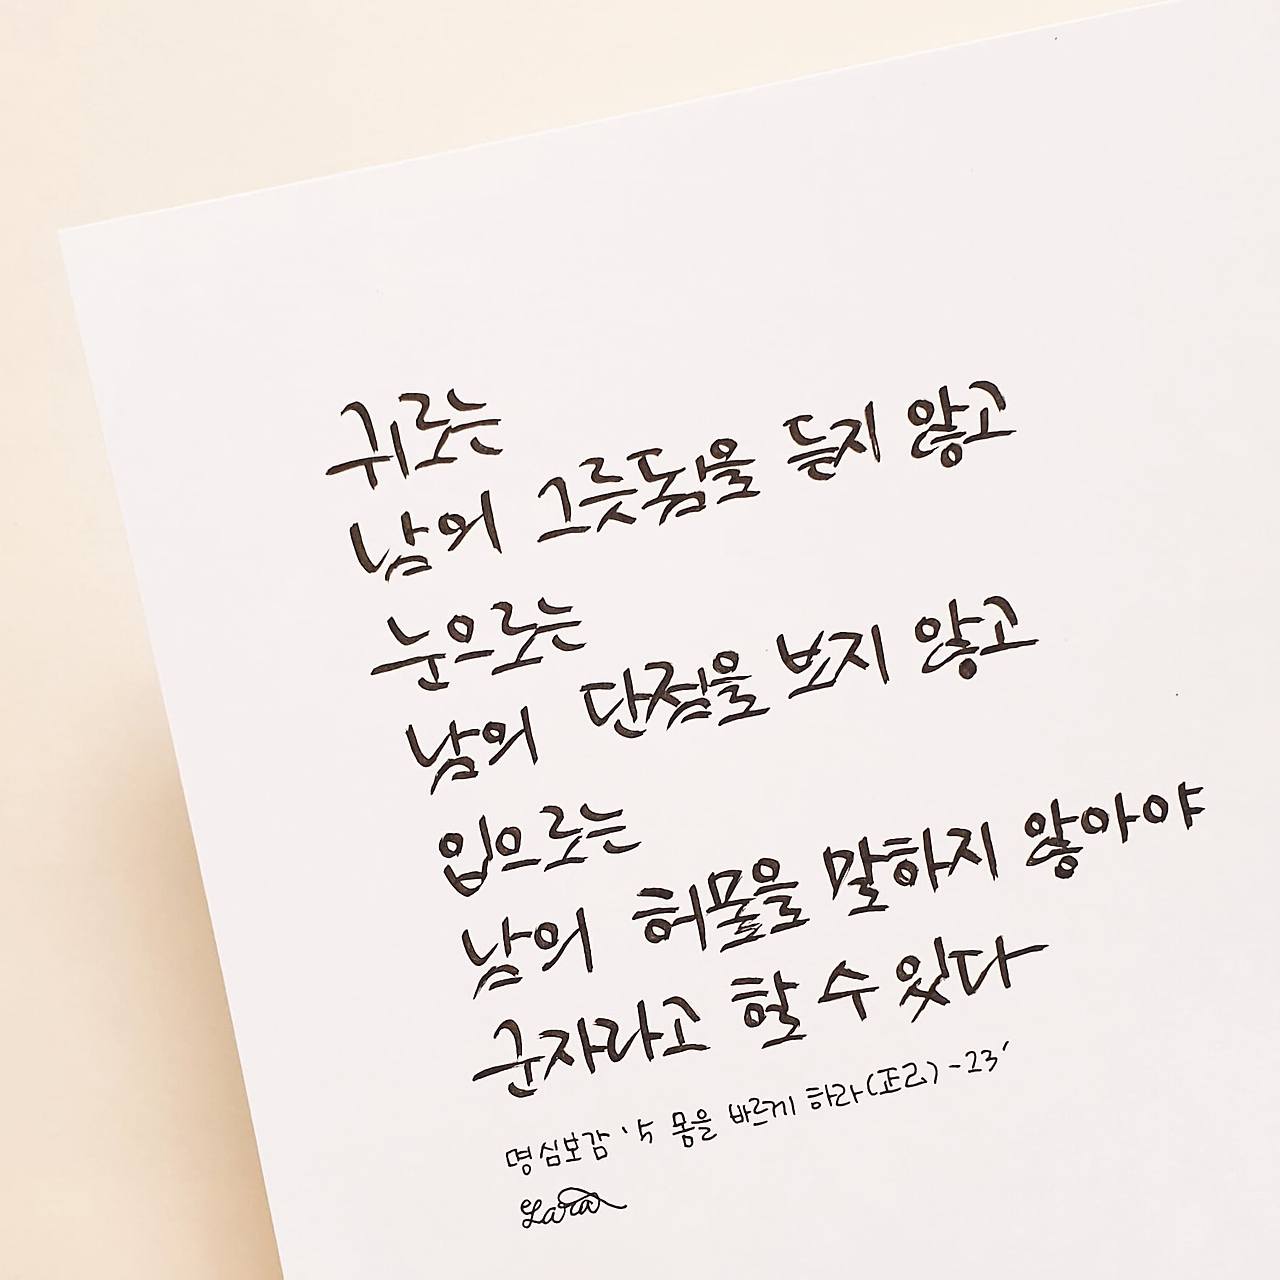 귀로는
남의 그릇됨을 듣지 않고
눈으로는
남의 단점을 보지 않고
입으로는
남의 허물을 말하지 않아야
군자라고 할 수 있다
명심보감 '5 몸을 바르게 하라(正己)-23'
Lara